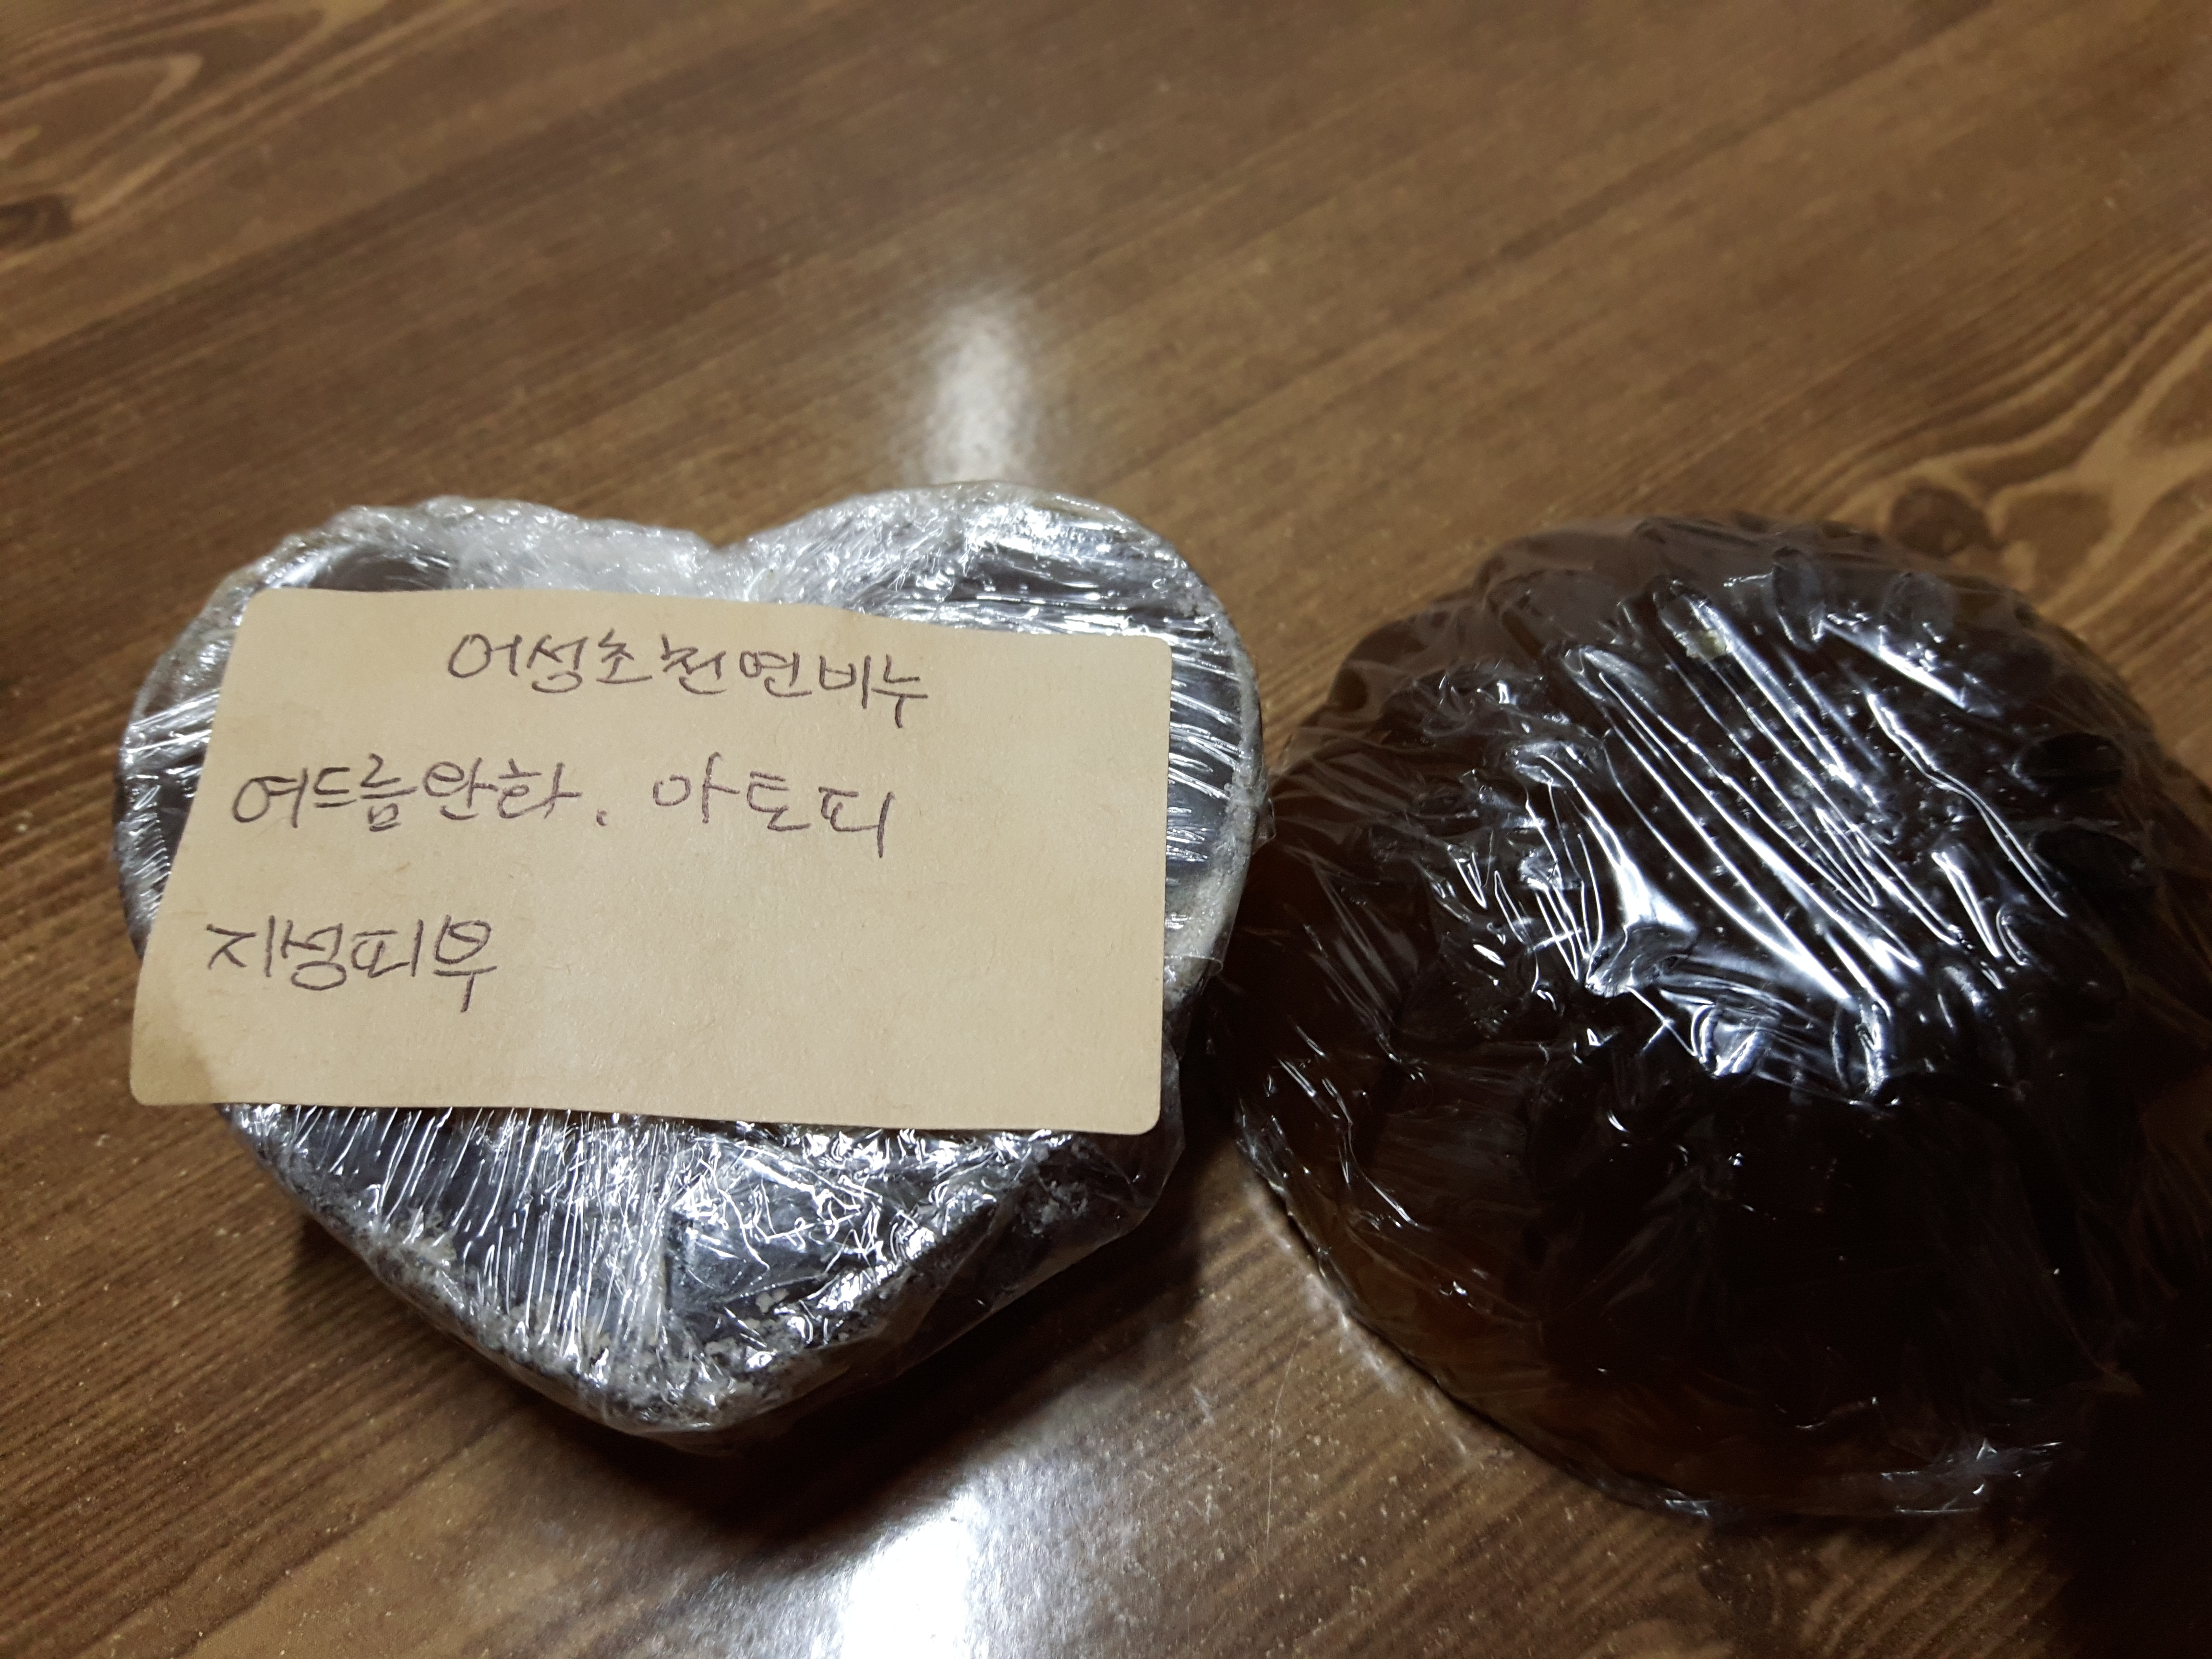 어성초천연비누
여드름완화. 아토피
지성피부